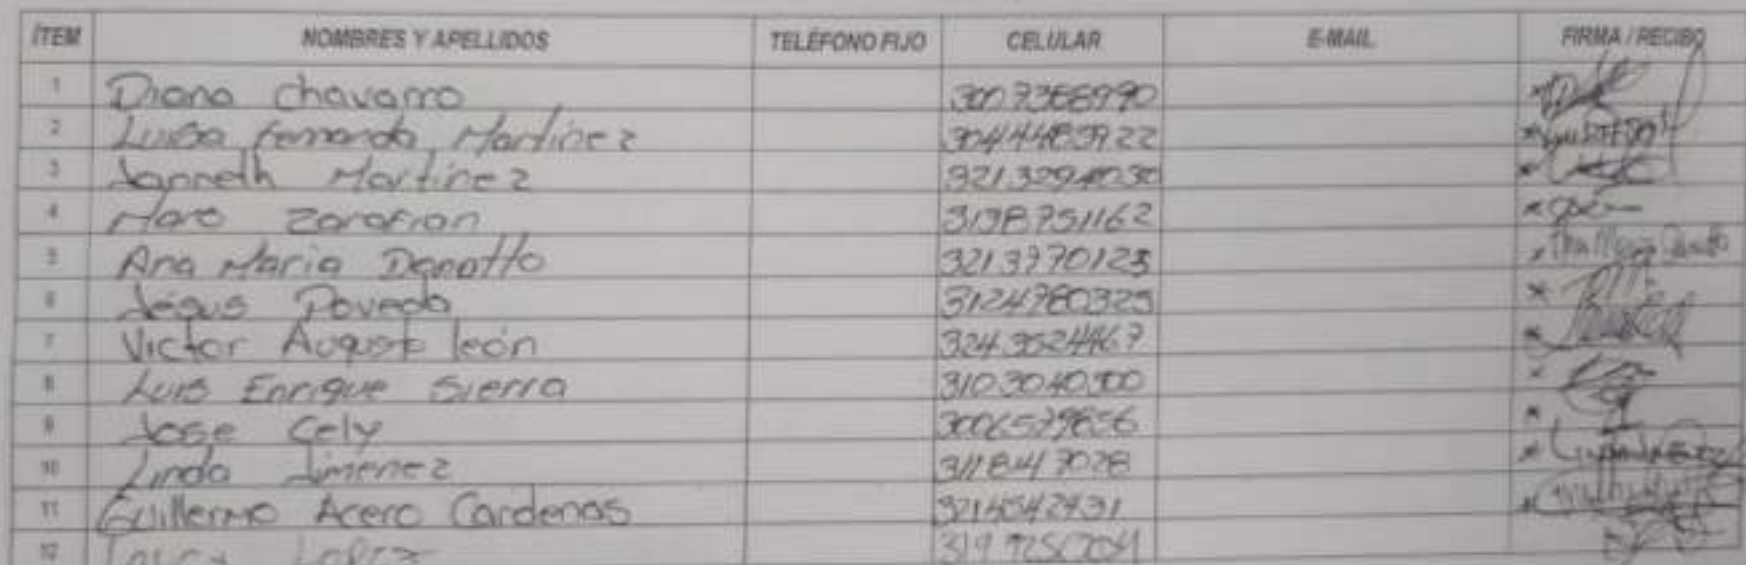 ÍTEM NOMBRES Y APELLIDOS TELÉFONO FIJO CELULAR E-MAIL FIRMA / RECIBO
1 Diana Chavarro 3007368990
2 Luisa Fernanda Martinez 3044483922
3 Janneth Martinez
4 3138751162
5 Ana Maria Danotto 3213970123 Ana Maria Danotto
6 Jesus Poveda 3124780325
7 Victor Augusto león 3243524467
8 Luis Enrique Sierra 3103040300
9 Jose Cely 3006579656
10 Linda Jimenez 3118417028
11 Guillermo Acero Cardenas 3214542431
12 Lopez